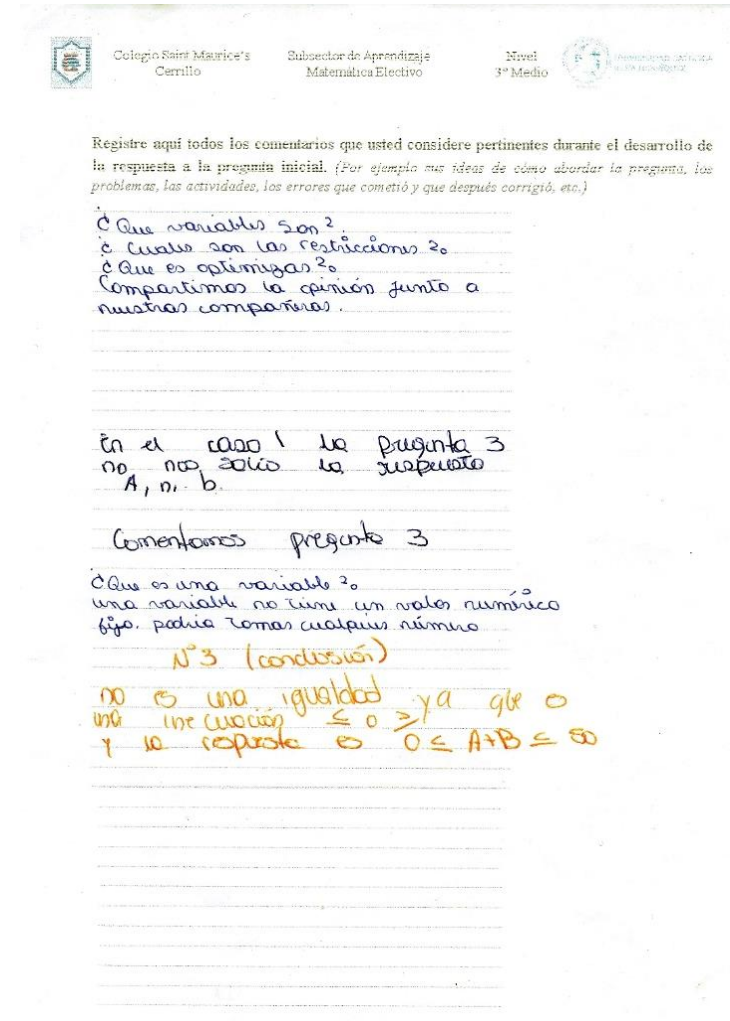 Colegio Saint Maurice's
Cerrillo
Subsector de Aprendizaje
Matemática Electivo
Nivel
3º Medio
Registre aquí todos los comentarios que usted considere pertinentes durante el desarrollo de
la respuesta a la pregunta inicial. (Por ejemplo sus ideas de cómo abordar la pregunta, los
problemas, las actividades, los errores que cometió y que después corrigió, etc.)
¿Que variables son?
¿Cuales son las restricciones?
¿Que es optimizar?
Compartimos la opinión junto a
nuestras compañeras.
En el caso 1 la pregunta 3
no nos salio la respuesta
A, ni b.
Comentamos pregunta 3
¿Que es una variable?
una variable no tiene un valor numérico
fijo. podria tomar cualquier número
Nº3 (conclusión)
no es una igualdad ya que e
una inecuación ≤ o ≥
y la respuesta es 0 ≤ A+B ≤ 50